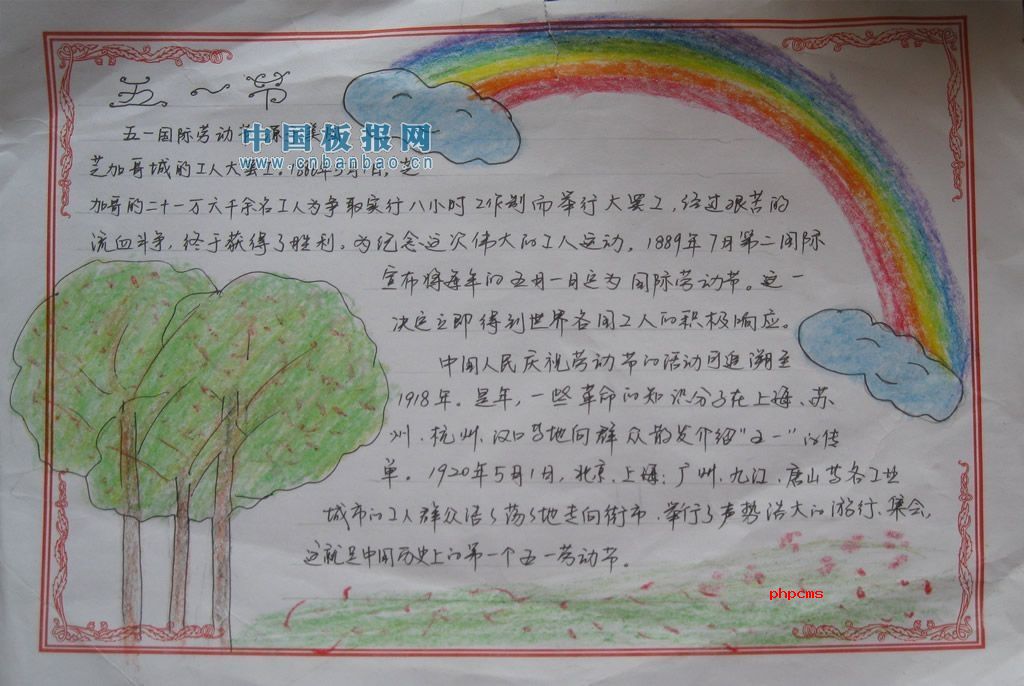 五一节
五一国际劳动节
中国板报网
www.cnbanbao.cn
芝加哥城的工人大罢工。1886年5月1日,芝
加哥的二十一万六千余名工人为争取实行八小时工作制而举行大罢工,经过艰苦的
流血斗争,终于获得了胜利。为纪念这次伟大的工人运动,1889年7月第二国际
宣布将每年的五月一日定为国际劳动节。这一
决定立即得到世界各国工人的积极响应。
中国人民庆祝劳动节的活动可追溯至
1918年。是年,一些革命的知识分子在上海、苏
州、杭州、汉口等地向群众散发介绍“五一”的传
单。1920年5月1日,北京、上海、广州、九江、唐山等各工业
城市的工人群众浩浩荡荡地走向街市、举行了声势浩大的游行、集会,
这就是中国历史上的第一个五一劳动节。
phpcms